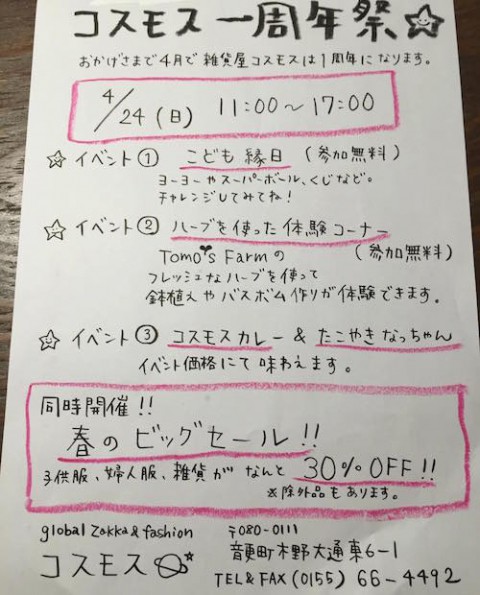 コスモス 一周年祭
おかげさまで4月で雑貨屋コスモスは1周年になります。
4/24(日) 11:00〜17:00
イベント① こども縁日 (参加無料)
ヨーヨーやスーパーボール、くじなど。
チャレンジしてみてね!
イベント② ハーブを使った体験コーナー
Tomo's Farmの (参加無料)
フレッシュなハーブを使って
鉢植えやバスボム作りが体験できます。
イベント③ コスモスカレー & たこやきなっちゃん
イベント価格にて味わえます。
同時開催!!
春のビッグセール!!
子供服、婦人服、雑貨がなんと 30%OFF!!
※除外品もあります。
global zakka & fashion 〒080-0111
コスモス 音更町木野大通東6-1
TEL&FAX(0155)66-4492